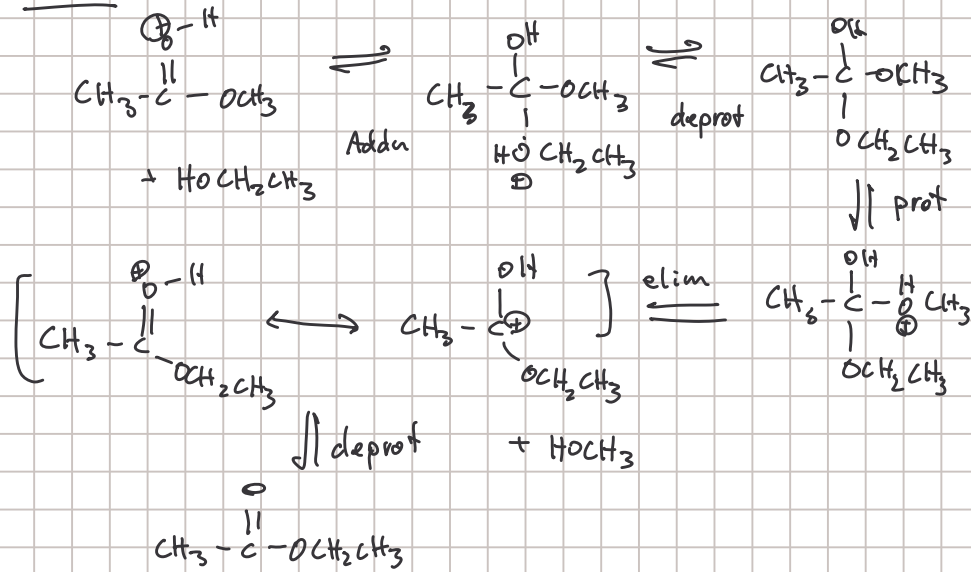 ⊕ O - H
||
CH3 - C - OCH3
+ HOCH2CH3
Addn
OH
CH3 - C - OCH3
HO CH2CH3
⊕
deprot
OH
CH3 - C - OCH3
OCH2CH3
prot
OH
CH3 - C - O CH3
H
⊕
OCH2CH3
elim
[
⊕ O - H
||
CH3 - C
OCH2CH3
OH
CH3 - C ⊕
OCH2CH3
]
+ HOCH3
deprot
O
||
CH3 - C - OCH2CH3